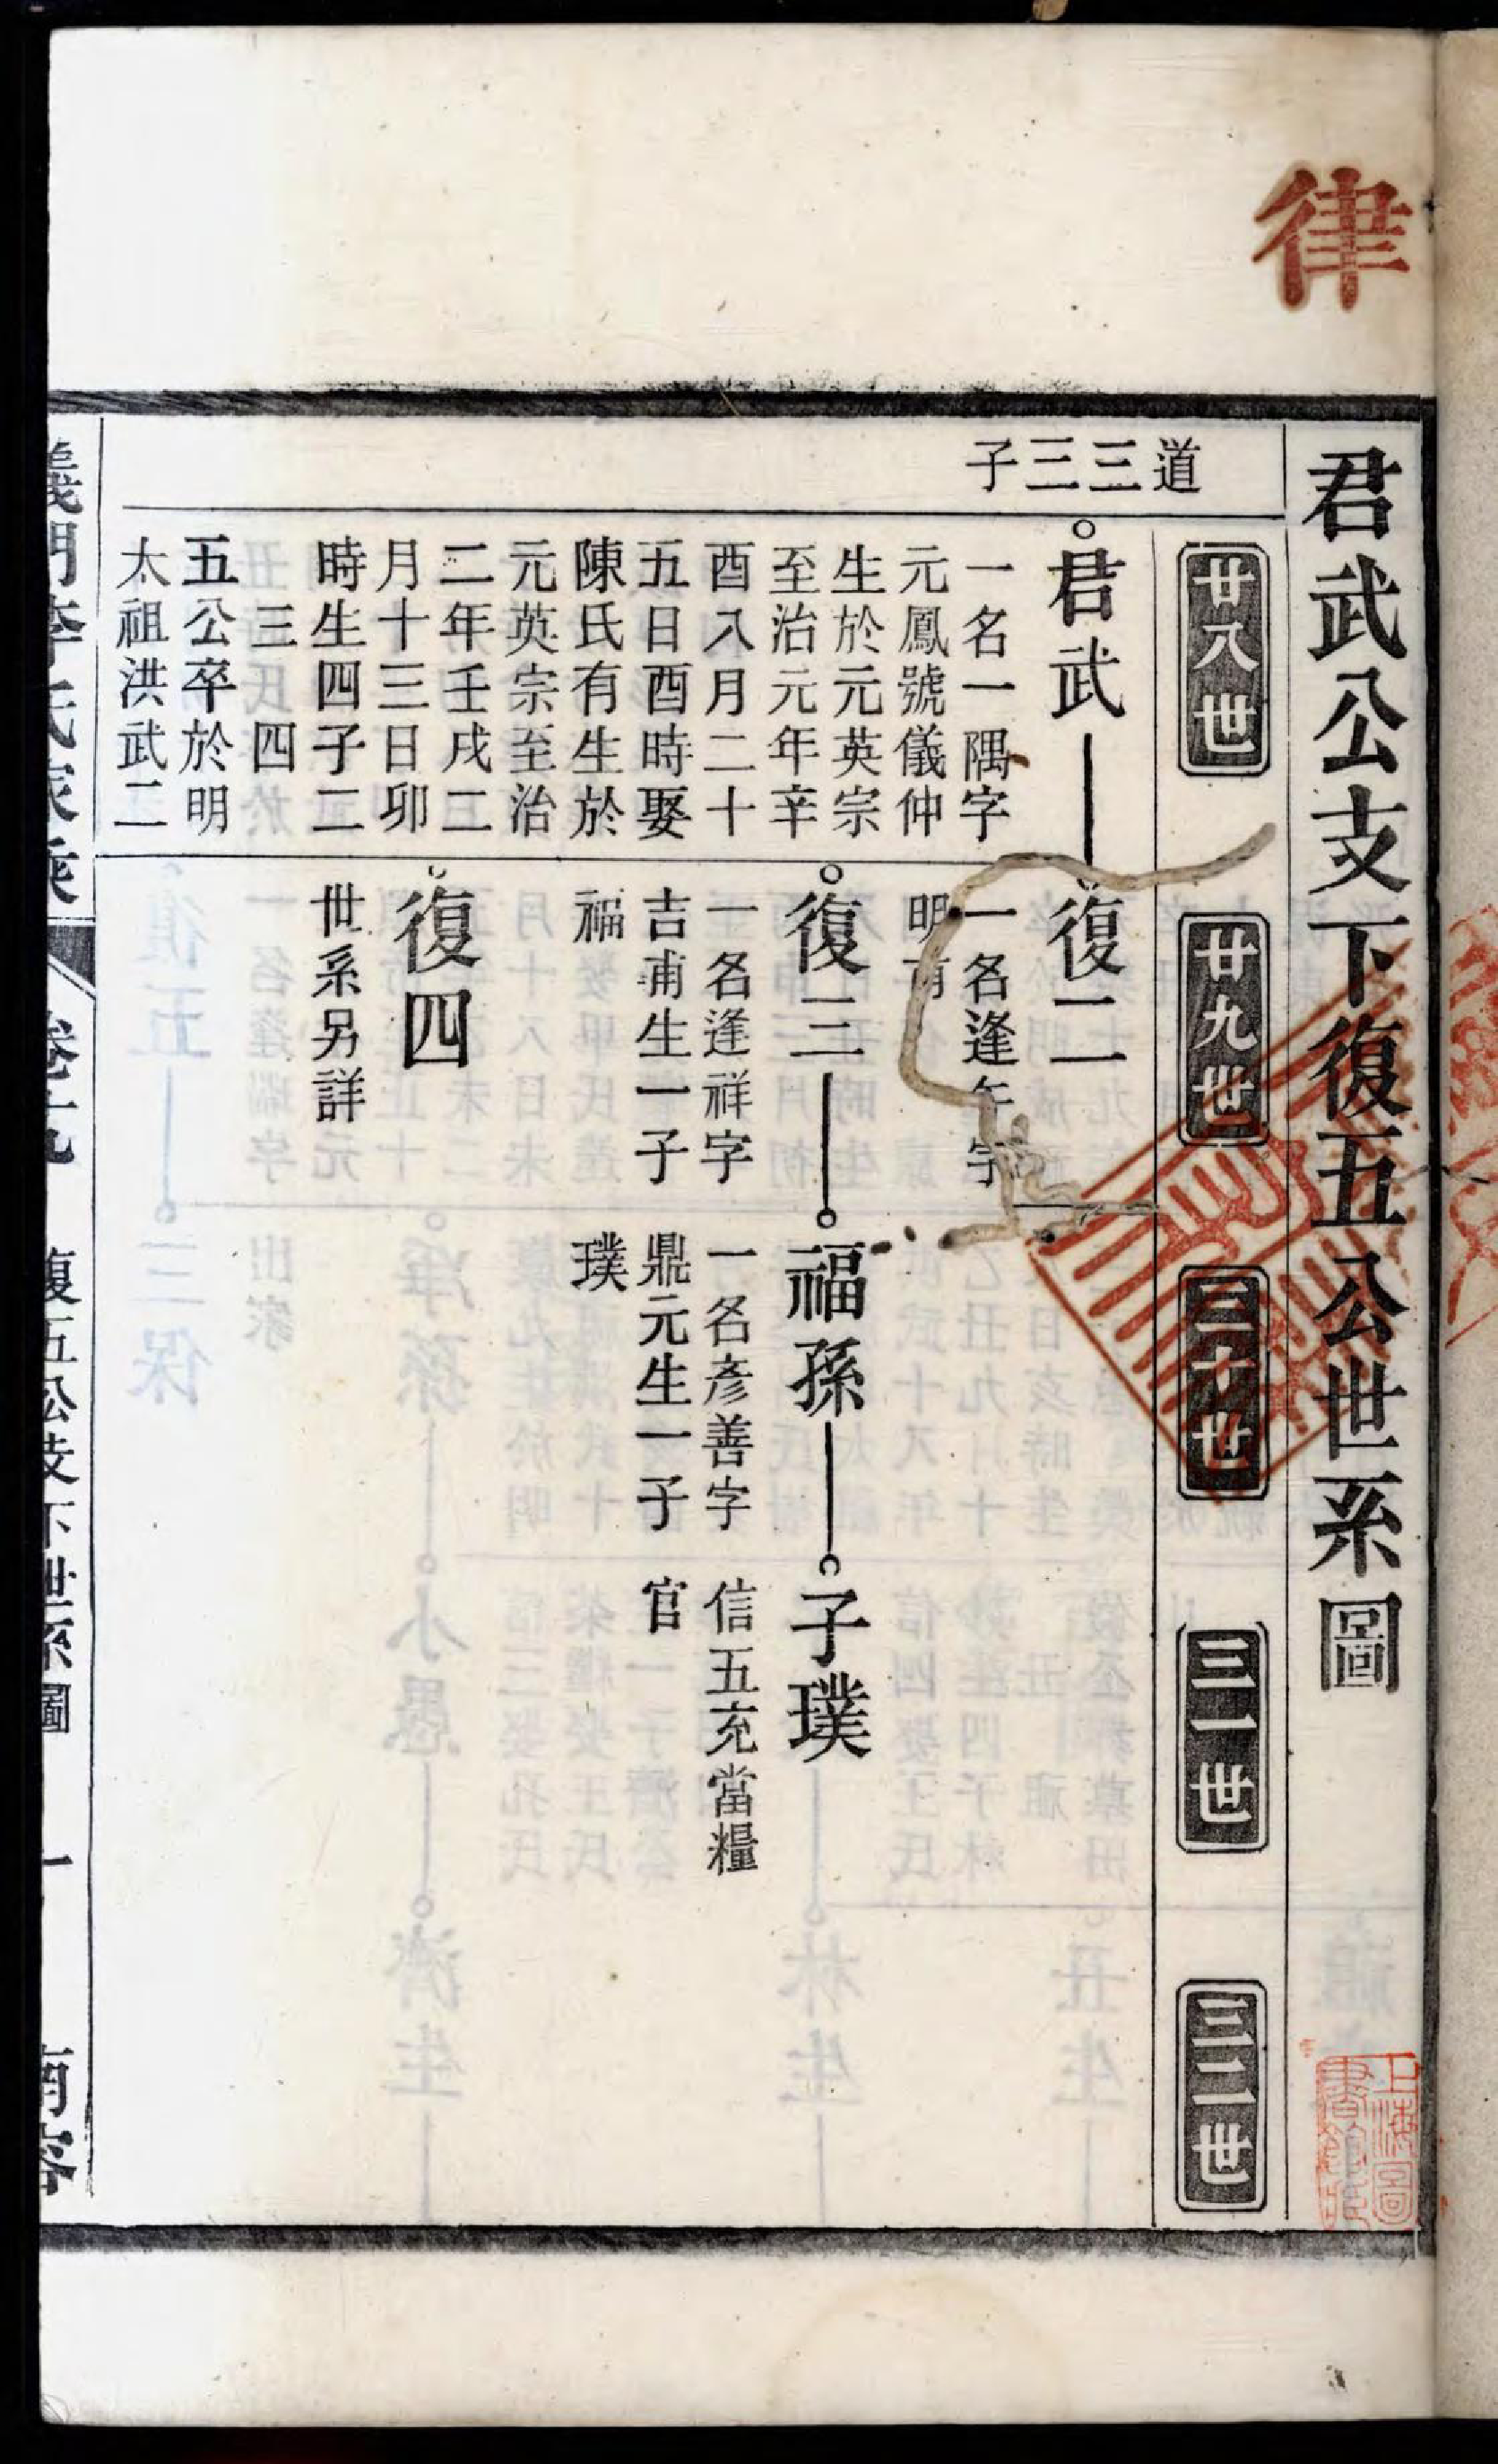 律
君武公支下復五公世系圖
廿八世
廿九世
三十世
三一世
三二世
道三三子
君武
一名一隅字
元鳳號儀仲
生於元英宗
至治元年辛
酉八月二十
五日酉時娶
陳氏有生於
元英宗至治
二年壬戌二
月十三日卯
時生四子二
三四
五公卒於明
太祖洪武二
復二
一名逢午字
明甫
復三
一名逢祥字
吉甫生一子
福
福孫
一名彥善字
鼎元生一子
璞
子璞
信五充當糧
官
復四
世系另詳
義門 氏家乘
卷 九
復五公支下世系圖
一
上海圖書館藏